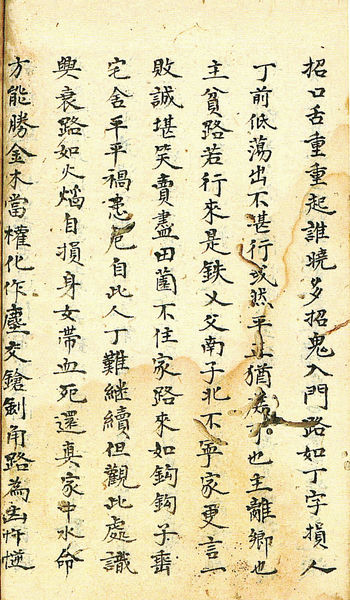 招口舌重重起誰曉多招鬼入門路如丁字損人
丁前低蕩出不甚行或然平止猶也主離鄉也
主貧路若行來是鉄乂父南子北不寧家更言一
敗誠堪笑賣盡田園不住家路來如鈎鈎子垂
宅舍平平禍患危自此人丁難継續但觀此處識
興衰路如火熖自損身女帶血死還真家中水命
方能勝金木當權化作塵交鎗劍角路為忤逆